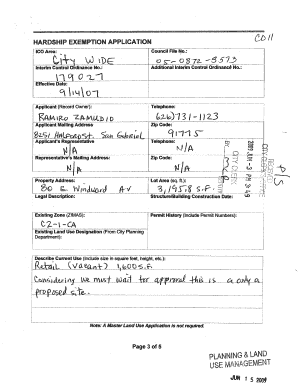 CD 11
HARDSHIP EXEMPTION APPLICATION
ICO Area:
City WIDE
Council File No.:
05-0872-S573
Interim Control Ordinance No.:
179027
Additional Interim Control Ordinance No.:
Effective Date:
9/14/07
Applicant (Record Owner):
RAMIRO ZAMUDIO
Telephone:
(626) 731-1123
Applicant Mailing Address
San Gabriel
Zip Code:
91775
Applicant's Representative
N/A
Telephone:
N/A
Representative's Mailing Address:
N/A
Zip Code:
N/A
Property Address:
80 E Windward Av
Lot Area (sq. ft.):
3,195.8 S.F.
Legal Description:
Structure/Building Construction Date:
Existing Zone (ZIMAS):
C2-1-CA
Permit History (Include Permit Numbers):
Existing Land Use Designation (From City Planning
Department):
Describe Current Use (Include size in square feet, height, etc.):
Retail (vacant) 1,600 S.F.
Considering we must wait for approval this is a only a
proposed site.
Note: A Master Land Use Application is not required.
Page 3 of 5
PLANNING & LAND
USE MANAGEMENT
JUN 15 2009
CITY CLERK
P/S